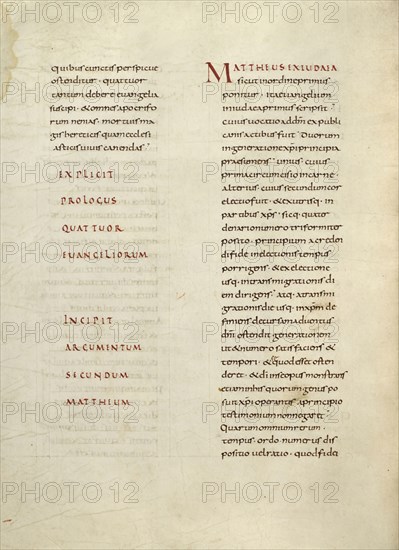 quibus cunctis perspicue
ostenditur · quattuor
tantum debere euangelia
suscipi · & omnes apocrifo
rum nenias · mortuis ma
gis hereticis quam ecclesi
asticis uiuis canendas
EXPLICIT
PROLOGUS
QUATTUOR
EUANGELIORUM
INCIPIT
ARGUMENTUM
SECUNDUM
MATTHEUM
MATTHEUS EX IUDAEA
sicut in ordine primus
ponitur · ita euangelium
in iudaea primus scripsit
cuius uocatio ad dm̄ ex publi
canis actibus fuit · Duorum
in generatione xp̄i principia
praesumens · unius cuius
prima circumcisio in carne ·
alterius cuius secundum cor
electio fuit · & ex utrisq: in
patribus xp̄s · sicq: quater
denario numero triformiter
posito · principium a creden
di fide in electionis tempus
porrigens · & ex electione
usq: in transmigrationis di
em dirigens · atq: a transmi
grationis die usq: in xp̄m de
finiens decursam aduentus
dn̄i ostendit generationem
ut & numero satisfaciens &
tempori · & quod esset osten
deret · & dī in se opus monstrans
etiam in his quorum genus po
suit xp̄i operantis a principio
testimonium non negaret ·
Quarum omnium rerum ·
tempus · ordo · numerus dis
positio uel ratio · quod fidei
PHOTO 12